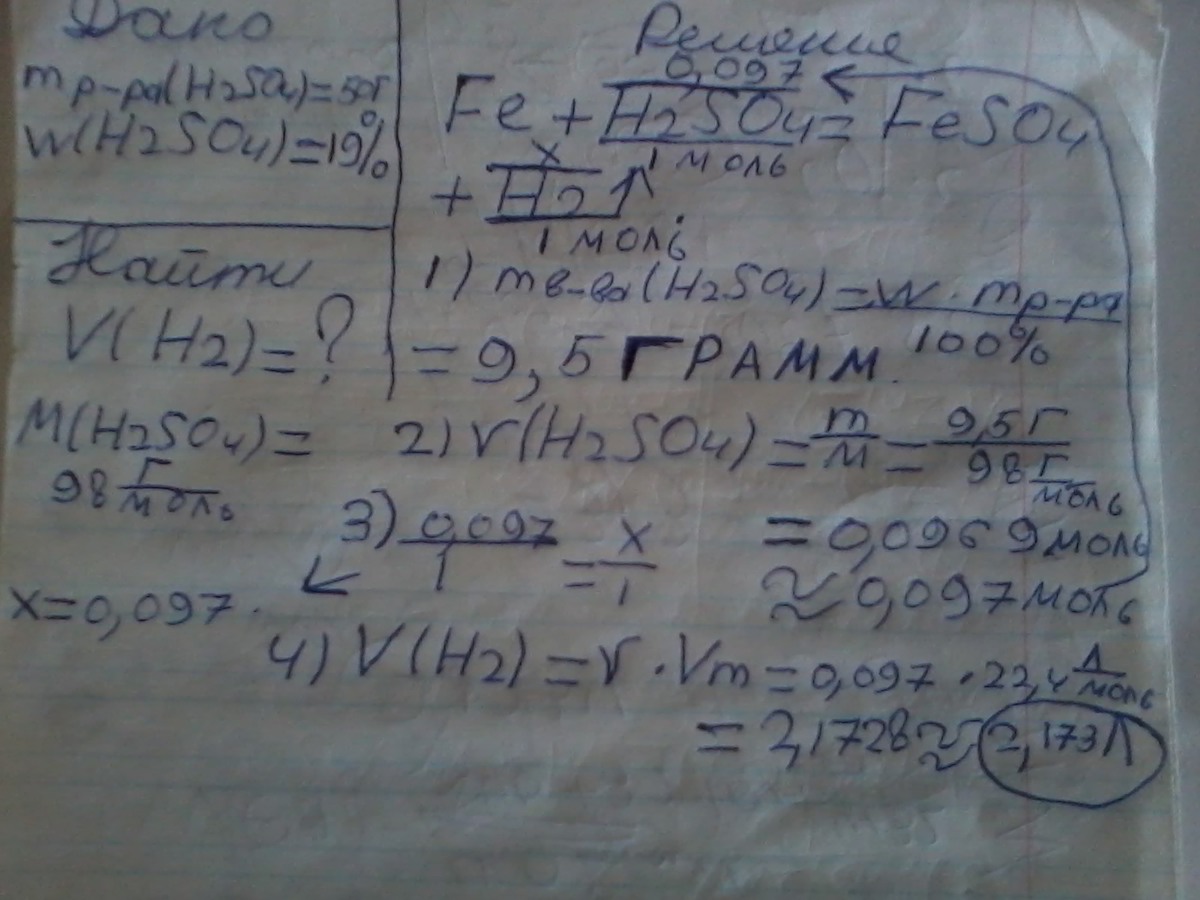 Дано
m р-ра(H2SO4)=50г
W(H2SO4)=19%
Найти
V(H2)=?
M(H2SO4)=
98 г/моль
Решение
0,097
Fe + H2SO4 = FeSO4
x 1 моль
+ H2↑
1 моль
1) m в-ва(H2SO4) = W · m р-ра / 100%
= 9,5 ГРАММ.
2) ν(H2SO4) = m/M = 9,5г / 98 г/моль
= 0,0969 моль
≈ 0,097 моль
3) 0,097/1 = x/1
x=0,097.
4) V(H2) = ν · Vm = 0,097 · 22,4 л/моль
= 2,1728 ≈ 2,173л